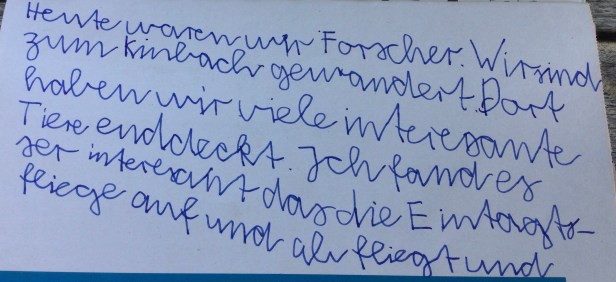 Heute waren wir Forscher. Wir sind
zum Kinbach gewandert. Dort
haben wir viele interesante
Tiere enddeckt. Ich fand es
ser interesant das die Eintagts-
fliege auf und ab fliegt und